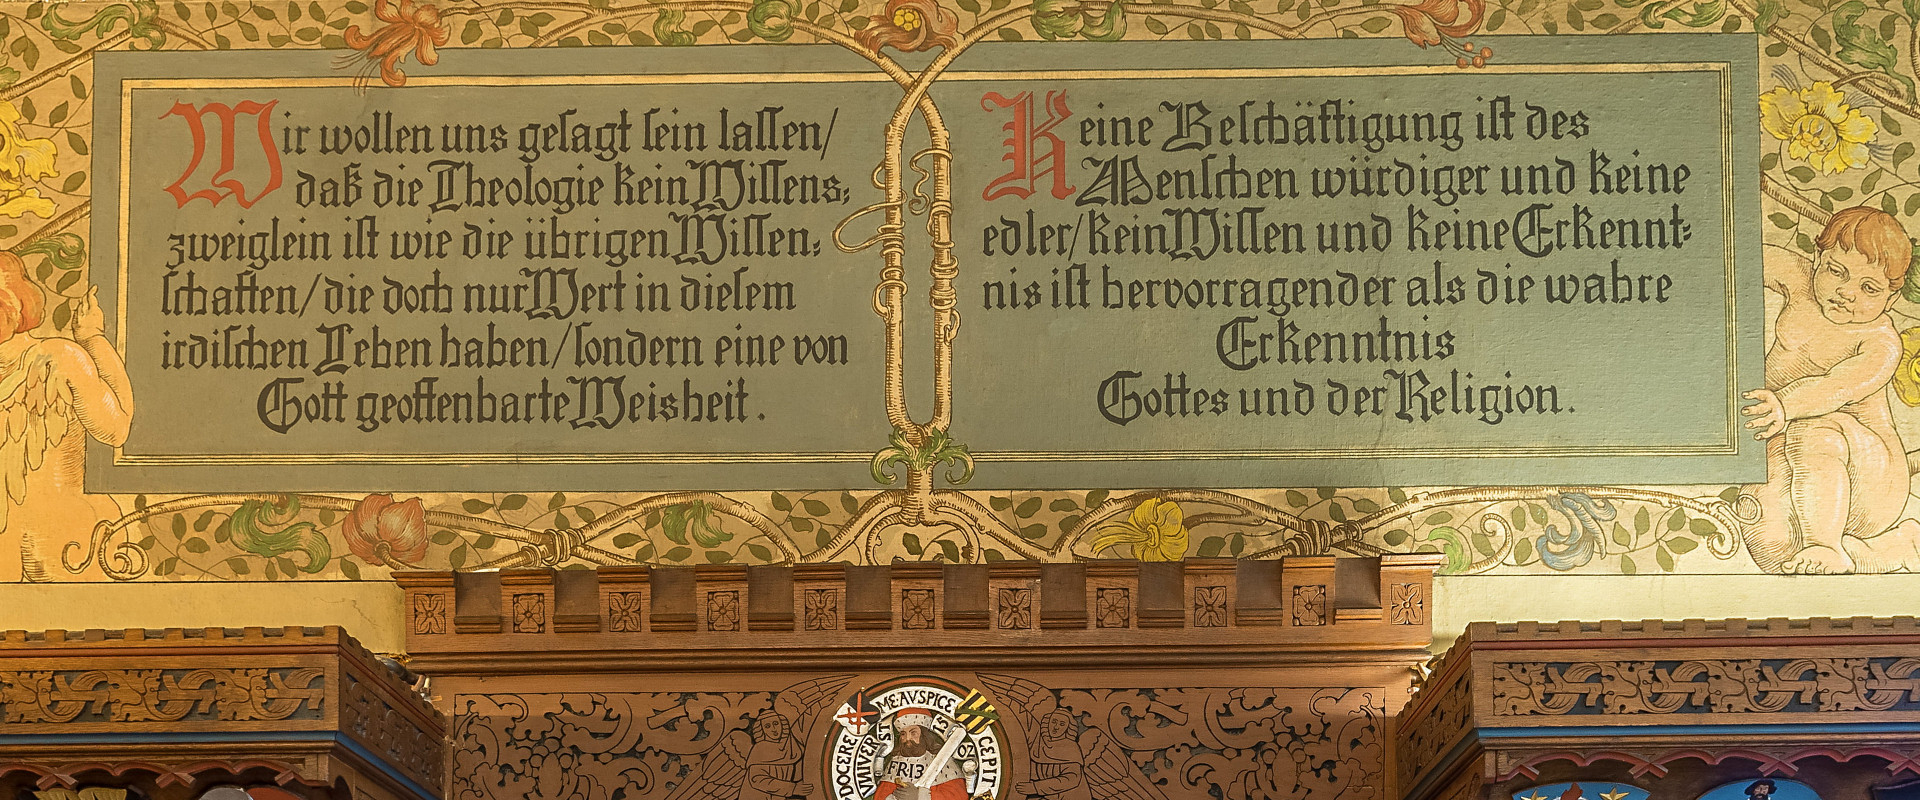 Wir wollen uns gesagt sein lassen/
daß die Theologie kein Wissens⸗
zweiglein ist wie die übrigen Wissen⸗
schaften/die doch nur Wert in diesem
irdischen Leben haben/sondern eine von
Gott geoffenbarte Weisheit.
Keine Beschäftigung ist des
Menschen würdiger und keine
edler/kein Wissen und keine Erkennt⸗
nis ist hervorragender als die wahre
Erkenntnis
Gottes und der Religion.
ME AVSPICE
CEPIT
DOCERE
VNIVER
ST
15
02
FR·13